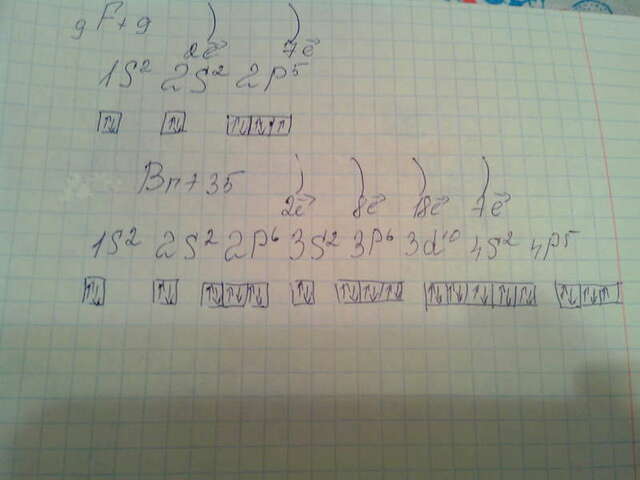 9 F+9 ) )
2ē 7ē
1S² 2S² 2p⁵
↑↓ ↑↓ ↑↓ ↑↓ ↑
Br+35 ) ) ) )
2ē 8ē 18ē 7ē
1S² 2S² 2p⁶ 3S² 3p⁶ 3d¹⁰ 4S² 4p⁵